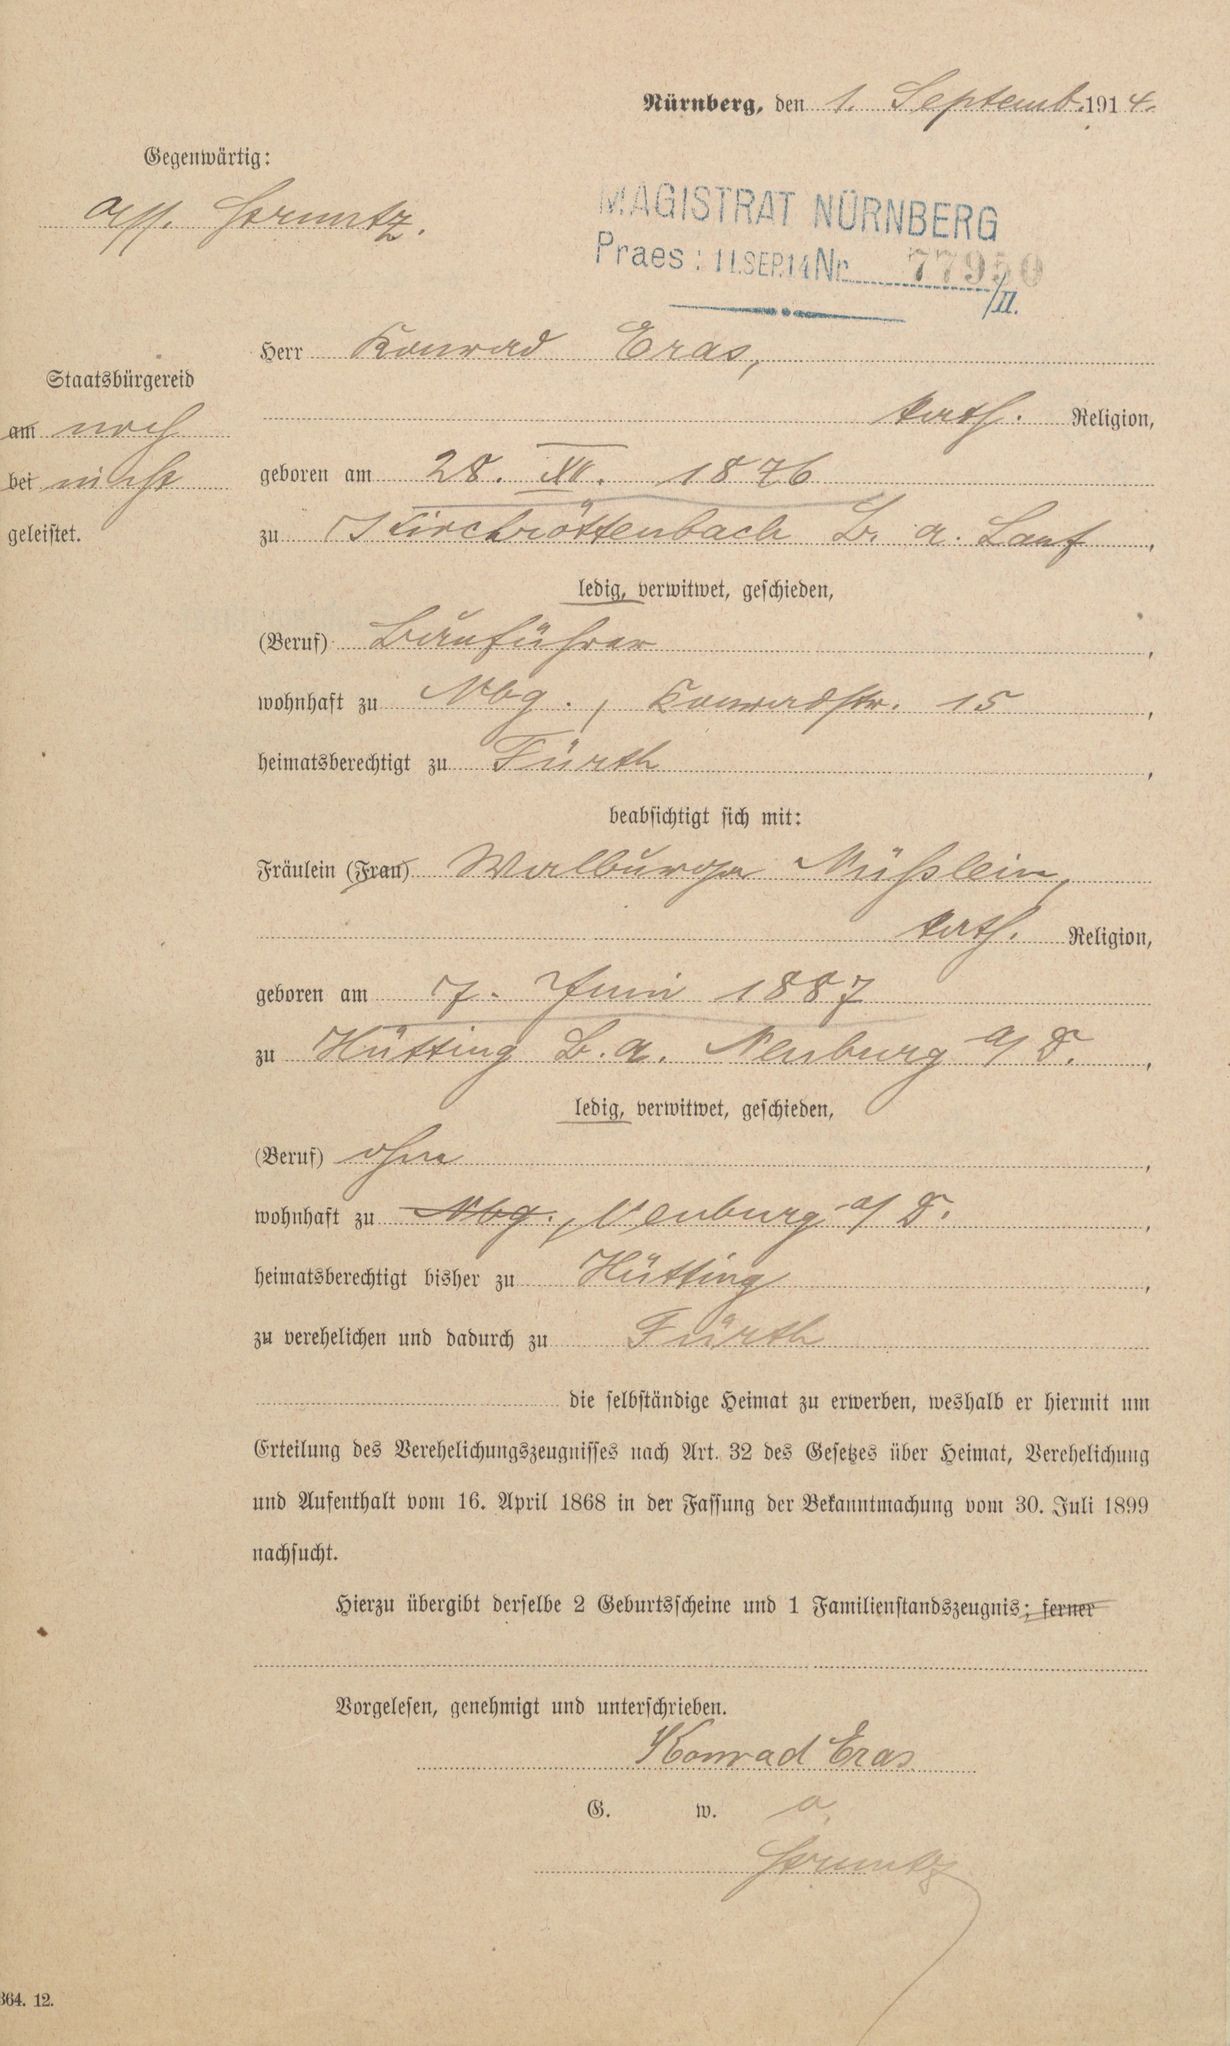 Nürnberg, den 1. Septemb. 1914.
Gegenwärtig:
Ass.
MAGISTRAT NÜRNBERG
Praes: 11.SEP.14 Nr. 77950
/II.
Herr Konrad Eras,
kath. Religion,
Staatsbürgereid
am noch
bei nicht
geleistet.
geboren am 28. XI. 1876
zu Kirchröttenbach B. a. Lauf,
ledig, verwitwet, geschieden,
(Beruf) Bauführer,
wohnhaft zu Nbg., Konradstr. 15,
heimatsberechtigt zu Fürth,
beabsichtigt sich mit:
Fräulein (Frau) Walburga Nüßlein,
kath. Religion,
geboren am 7. Juni 1887
zu Hütting B. a. Neuburg a/D.,
ledig, verwitwet, geschieden,
(Beruf) ohne,
wohnhaft zu Nbg., Neuburg a/D.,
heimatsberechtigt bisher zu Hütting,
zu verehelichen und dadurch zu Fürth
die selbständige Heimat zu erwerben, weshalb er hiermit um
Erteilung des Verehelichungszeugnisses nach Art. 32 des Gesetzes über Heimat, Verehelichung
und Aufenthalt vom 16. April 1868 in der Fassung der Bekanntmachung vom 30. Juli 1899
nachsucht.
Hierzu übergibt derselbe 2 Geburtsscheine und 1 Familienstandszeugnis; ferner
Vorgelesen, genehmigt und unterschrieben.
Konrad Eras
G. w. o.
364. 12.